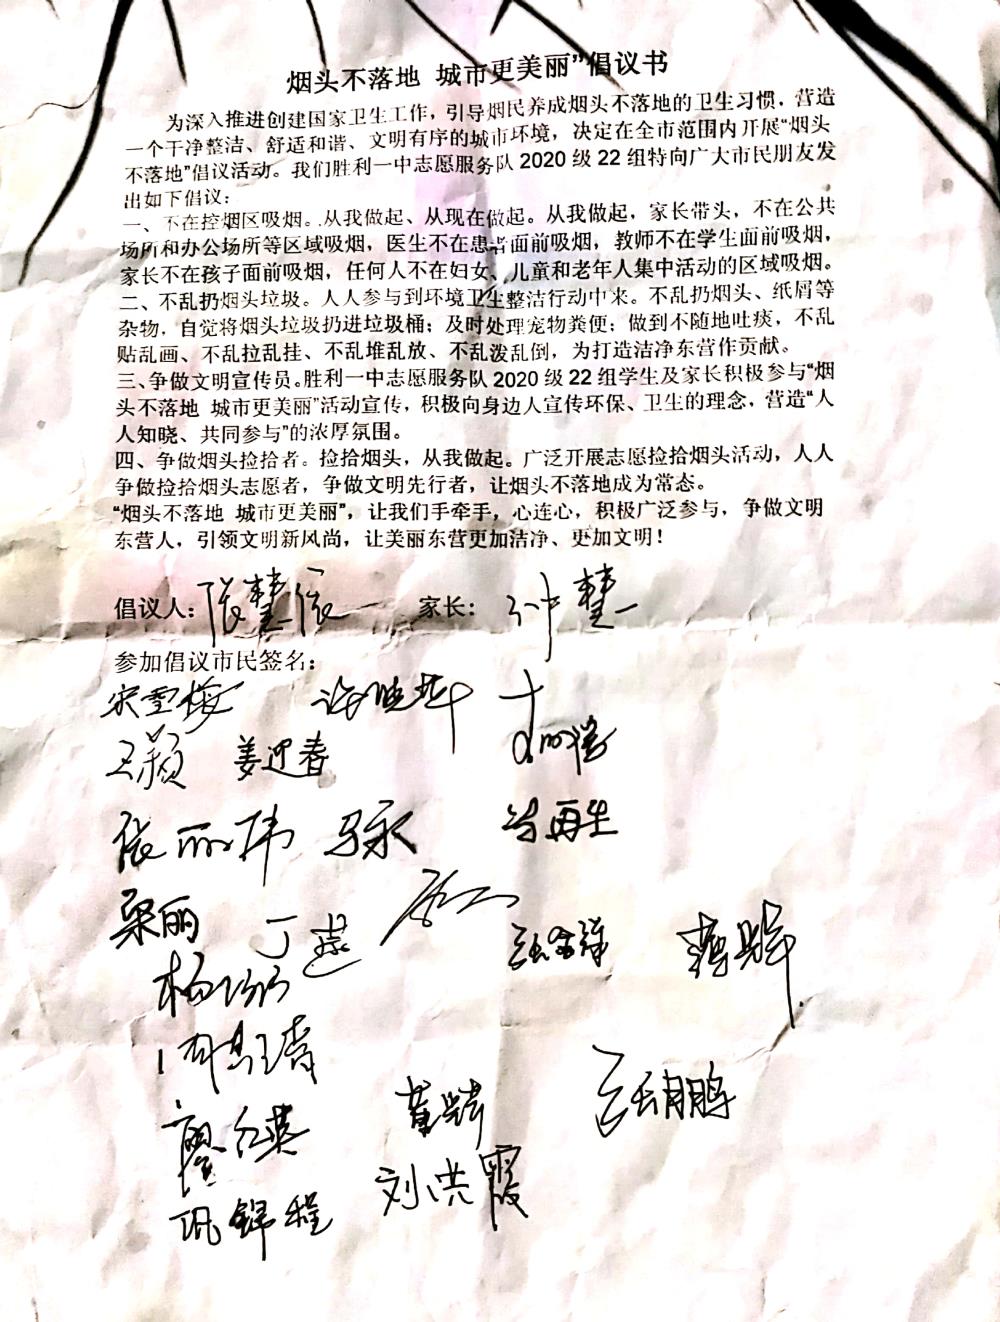 烟头不落地 城市更美丽”倡议书
为深入推进创建国家卫生工作，引导烟民养成烟头不落地的卫生习惯，营造
一个干净整洁、舒适和谐、文明有序的城市环境，决定在全市范围内开展“烟头
不落地”倡议活动。我们胜利一中志愿服务队 2020 级 22 组特向广大市民朋友发
出如下倡议：
一、不在控烟区吸烟。从我做起、从现在做起。从我做起，家长带头，不在公共
场所和办公场所等区域吸烟，医生不在患者面前吸烟，教师不在学生面前吸烟，
家长不在孩子面前吸烟，任何人不在妇女、儿童和老年人集中活动的区域吸烟。
二、不乱扔烟头垃圾。人人参与到环境卫生整洁行动中来。不乱扔烟头、纸屑等
杂物，自觉将烟头垃圾扔进垃圾桶；及时处理宠物粪便；做到不随地吐痰，不乱
贴乱画、不乱拉乱挂、不乱堆乱放、不乱泼乱倒，为打造洁净东营作贡献。
三、争做文明宣传员。胜利一中志愿服务队 2020 级 22 组学生及家长积极参与“烟
头不落地 城市更美丽”活动宣传，积极向身边人宣传环保、卫生的理念，营造“人
人知晓、共同参与”的浓厚氛围。
四、争做烟头捡拾者。捡拾烟头，从我做起。广泛开展志愿捡拾烟头活动，人人
争做捡拾烟头志愿者，争做文明先行者，让烟头不落地成为常态。
“烟头不落地 城市更美丽”，让我们手牵手，心连心，积极广泛参与，争做文明
东营人，引领文明新风尚，让美丽东营更加洁净、更加文明！
倡议人：张慧依 家长：
参加倡议市民签名：
宋雪梅 许晓华
王颖 姜迎春
张丽伟 马永 冯再生
栗丽 丁燕
杨
廖红英 董辉
巩锦程 刘洪霞